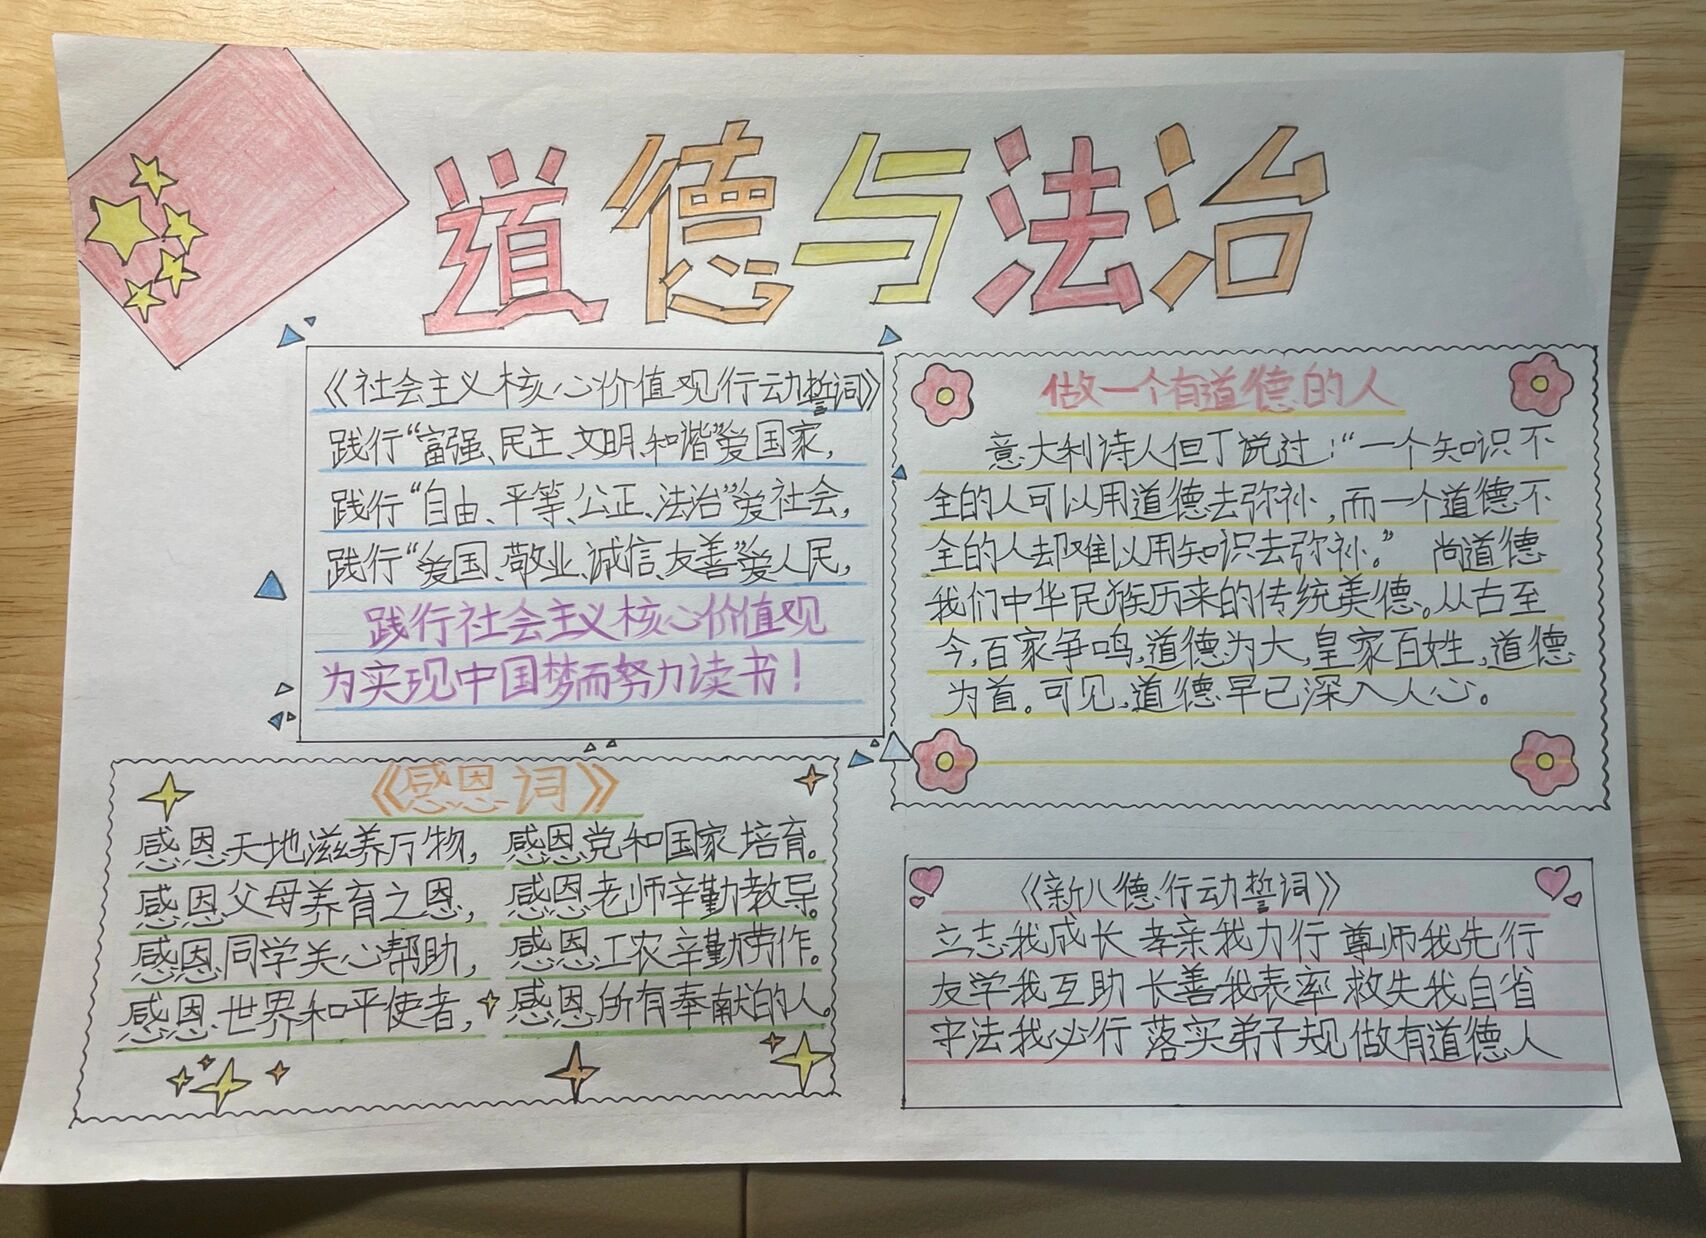 道德与法治
《社会主义核心价值观行动誓词》
践行“富强、民主、文明、和谐”爱国家,
践行“自由、平等、公正、法治”爱社会,
践行“爱国、敬业、诚信、友善”爱人民,
践行社会主义核心价值观
为实现中国梦而努力读书!
做一个有道德的人
意大利诗人但丁说过:“一个知识不
全的人可以用道德去弥补,而一个道德不
全的人却难以用知识去弥补。”尚道德
我们中华民族历来的传统美德。从古至
今,百家争鸣,道德为大,皇家百姓,道德
为首。可见,道德早已深入人心。
《感恩词》
感恩天地滋养万物, 感恩党和国家培育。
感恩父母养育之恩, 感恩老师辛勤教导。
感恩同学关心帮助, 感恩工农辛勤劳作。
感恩世界和平使者, 感恩所有奉献的人。
《新八德行动誓词》
立志我成长 孝亲我力行 尊师我先行
友学我互助 长善我表率 救失我自省
守法我必行 落实弟子规 做有道德人